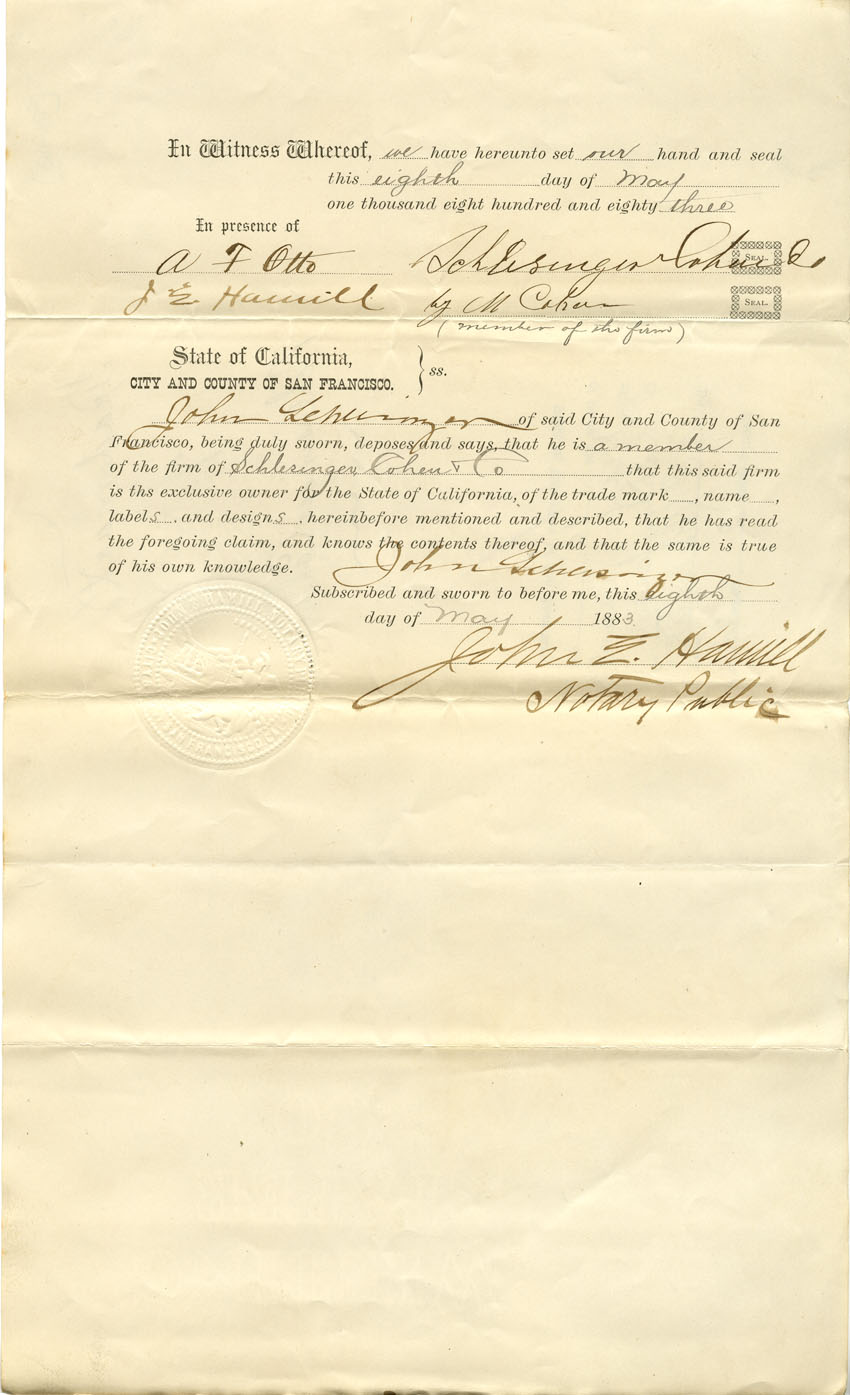 In Witness Whereof, we have hereunto set our hand and seal
this eighth day of May
one thousand eight hundred and eighty three
In presence of
A F Otto Schlesinger Cohen & Co SEAL.
J E Hamill by M Cohen SEAL.
(member of the firm)
State of California,
CITY AND COUNTY OF SAN FRANCISCO. } ss.
John Schlesinger of said City and County of San
Francisco, being duly sworn, deposes and says, that he is a member
of the firm of Schlesinger, Cohen & Co that this said firm
is ths exclusive owner for the State of California, of the trade mark , name ,
labels , and designs , hereinbefore mentioned and described, that he has read
the foregoing claim, and knows the contents thereof, and that the same is true
of his own knowledge. John Schlesinger
Subscribed and sworn to before me, this eighth
day of May 1883.
John E. Hamill
Notary Public
SAN FRANCISCO